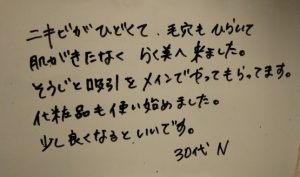 ニキビがひどくて、毛穴もひらいて
肌がきになく らく美へ来ました。
そうじと吸引をメインでやってもらってます。
化粧品も使い始めました。
少し良くなるといいです。
30代 N